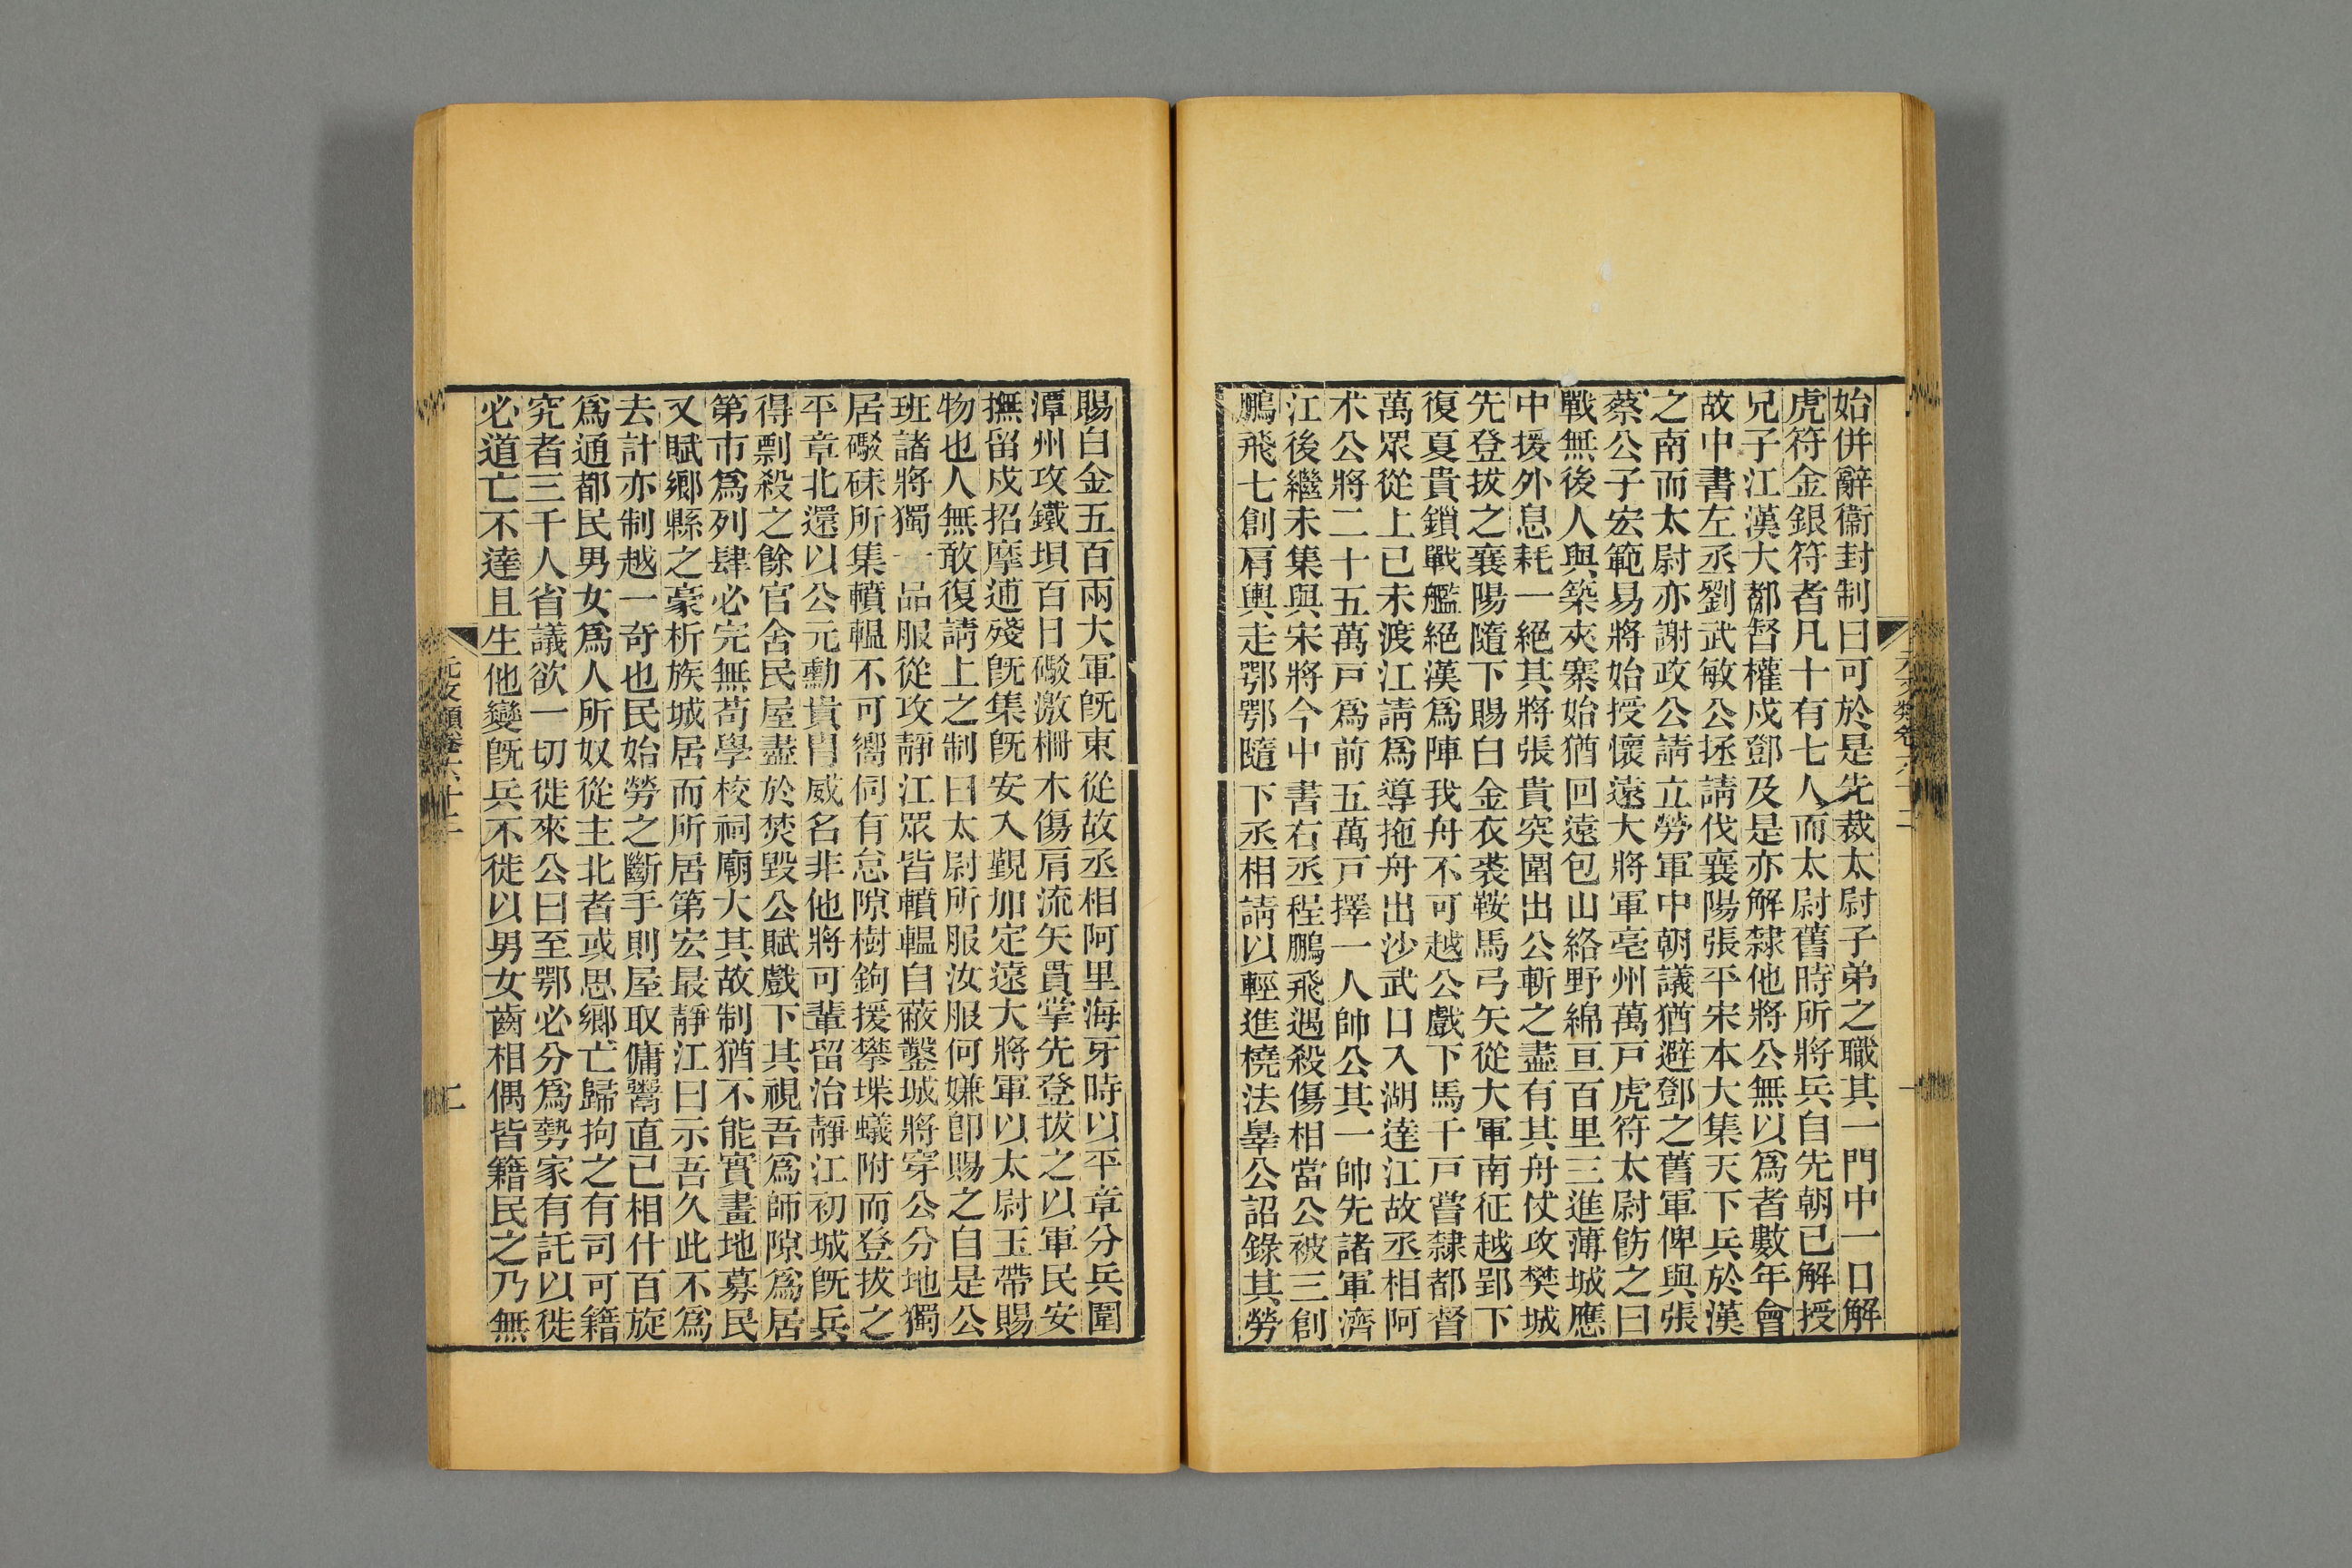 始併辭衞封制曰可於是先裁太尉子弟之職其一門中一日解
虎符金銀符者凡十有七人而太尉舊時所將兵自先朝已解授
兄子江漢大都督權戍鄧及是亦解隸他將公無以爲者數年會
故中書左丞劉武敏公拯請伐襄陽張平宋本大集天下兵於漢
之南而太尉亦謝政公請立勞軍中朝議猶避鄧之舊軍俾與張
蔡公子宏範易將始授懷遠大將軍亳州萬戸虎符太尉飭之曰
戰無後人與築夾寨始猶回遠包山絡野綿亘百里三進薄城應
中援外息耗一絕其將張貴突圍出公斬之盡有其舟仗攻樊城
先登拔之襄陽隨下賜白金衣裘鞍馬弓矢從大軍南征越郢下
復夏貴鎖戰艦絕漢爲陣我舟不可越公戲下馬千戸嘗隸都督
萬眾從上已未渡江請爲導拖舟出沙武口入湖達江故丞相阿
术公將二十五萬戸爲前五萬戸擇一人帥公其一帥先諸軍濟
江後繼未集與宋將今中書右丞程鵬飛遇殺傷相當公被三創
鵬飛七創肩輿走鄂鄂隨下丞相請以輕進橈法辠公詔錄其勞
賜白金五百兩大軍旣東從故丞相阿里海牙時以平章分兵圍
潭州攻鐵垻百日礮激柵木傷肩流矢貫掌先登拔之以軍民安
撫留戍招摩逋殘旣集旣安入覲加定遠大將軍以太尉玉帶賜
物也人無敢復請上之制曰太尉所服汝服何嫌卽賜之自是公
班諸將獨一品服從攻靜江眾皆轒轀自蔽鑿城將穿公分地獨
居礮硃所集轒轀不可嚮伺有怠隙樹鉤援攀堞蟻附而登拔之
平章北還以公元勳貴胄威名非他將可輩留治靜江初城旣兵
得剽殺之餘官舍民屋盡於焚毀公賦戲下其視吾爲師隙爲居
第市爲列肆必完無苟學校祠廟大其故制猶不能實畫地募民
又賦鄉縣之豪析族城居而所居第宏最靜江曰示吾久此不爲
去計亦制越一奇也民始勞之斷手則屋取傭鬻直已相什百旋
爲通都民男女爲人所奴從主北者或思鄉亡歸拘之有司可籍
究者三千人省議欲一切徙來公曰至鄂必分爲勢家有託以徙
必道亡不達且生他變旣兵不徙以男女齒相偶皆籍民之乃無
元文類卷六十二
二